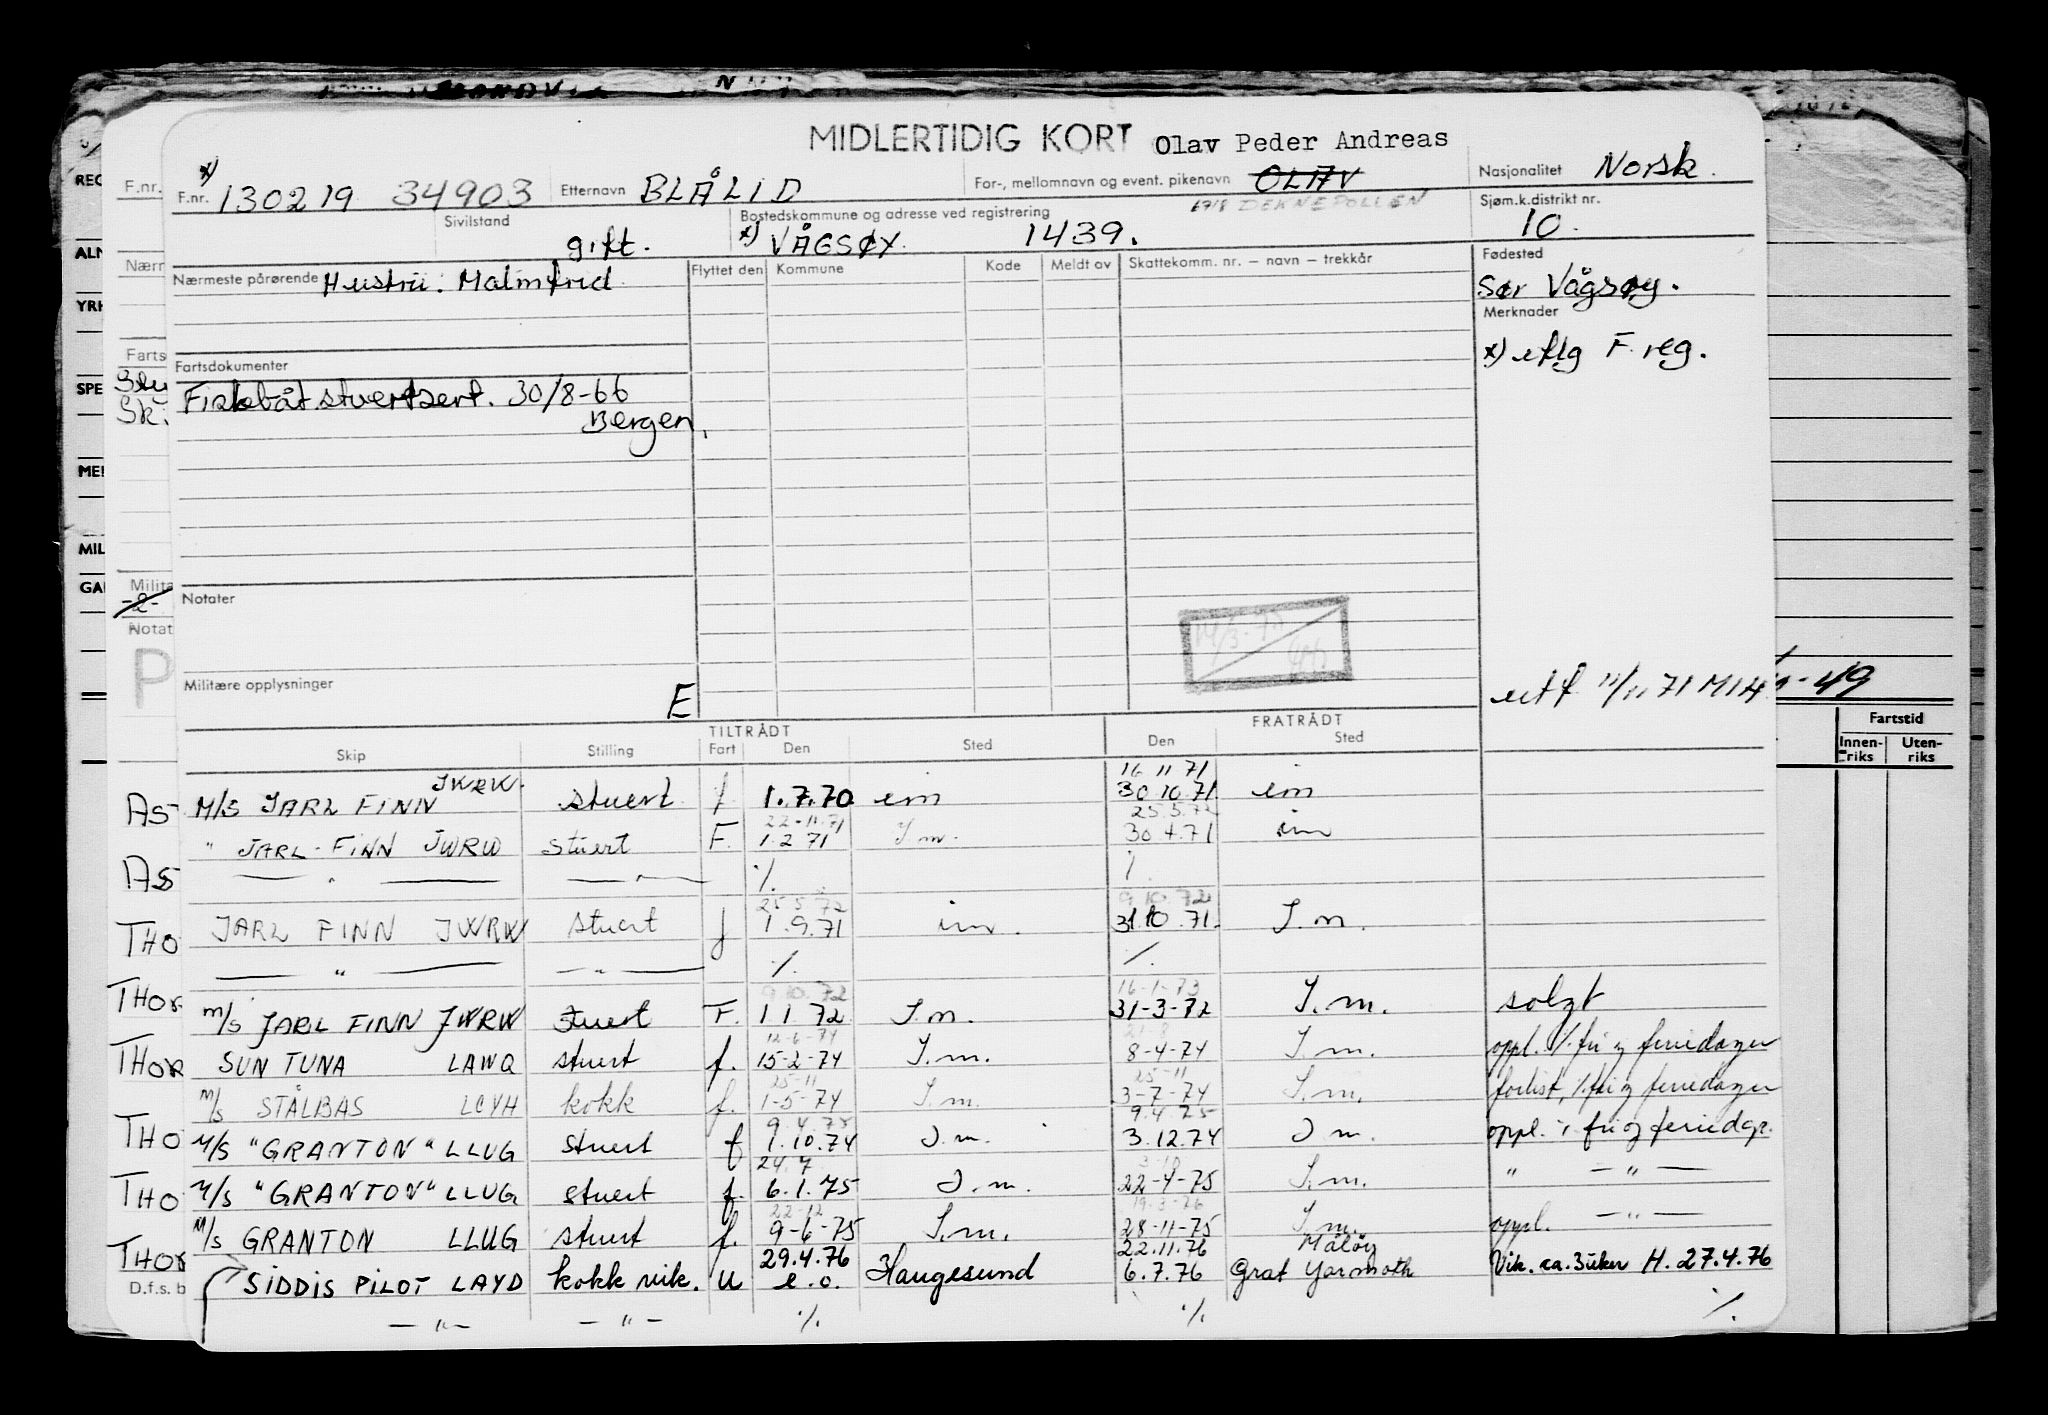 MIDLERTIDIG KORT Olav Peder Andreas
x) F.nr. 130219 34903 Etternavn BLÅLID For-, mellomnavn og event. pikenavn OLAV Nasjonalitet Norsk.
Sivilstand gift. Bostedskommune og adresse ved registrering 6718 DEKNEPOLLEN Sjøm.k.distrikt nr. 10.
x) VÅGSØY. 1439.
Nærmeste pårørende Hustru: Malmfrid Flyttet den Kommune Kode Meldt av Skattekomm. nr. – navn – trekkår Fødested
Sør Vågsøy.
Merknader
x) iflg F. reg.
Fartsdokumenter
Fiskbåtstuertsert. 30/8-66
Bergen.
Notater
Militære opplysninger E
utf 11/11 71 -49
TILTRÅDT FRATRÅDT
Skip Stilling Fart Den Sted Den Sted
JWRW. 16 11 71
M/S JARL FINN stuert f 1.7.70 im 30 10.71 im
22-11.71 25.5.72
" JARL-FINN JWRW stuert F. 1.2 71 I m. 30 4.71 im
— " — — " — %. %.
25 5 72 9 10. 72
JARL FINN JWRW stuert f 1.9.71 im. 31.10.71. I.m.
— " — — " — %. %.
9 10. 72 16-1-73
m/s JARL FINN JWRW stuert F. 1 1 72 I.m. 31-3-72 I.m. solgt
12-6-74 21-8
SUN TUNA LAWQ stuert f. 15-2-74 I.m. 8-4-74 I.m. oppl. %. fri og feriedager
25-11 25-11
m/s STÅLBAS LCYH kokk f. 1-5-74 I.m. 3-7-74 I.m. forlist, %. fri og feriedager
9.4.75 9.4.75
M/S "GRANTON" LLUG stuert f 1.10.74 I.m. 3.12.74 I m. oppl. % fri og feriedgr.
24.7 3-10
M/S "GRANTON" LLUG stuert f. 6.1.75 I.m. 22-4-75 I.m. " — " —
22-12 19.3-76
M/S GRANTON LLUG stuert f. 9-6-75 I.m. 28-11-75 I.m. oppl. — " —
29.4.76 22.11.76 Måløy
SIDDIS PILOT LAYD kokk vik. U e.o. Haugesund 6.7.76 Grat Yarmoth Vik. ca. 3 uker H. 27.4.76
— " — — " — %. %. %.
F.nr.
REG
ALM
Nærm
YRK
Farts
SPE
Sk.
MIL
Milita
-2-
Notat
P
AS
AS
THO
THOR
THOR
THO
THO
THOR
D.f.s. b
Fartstid
Innen-
riks
Uten-
riks